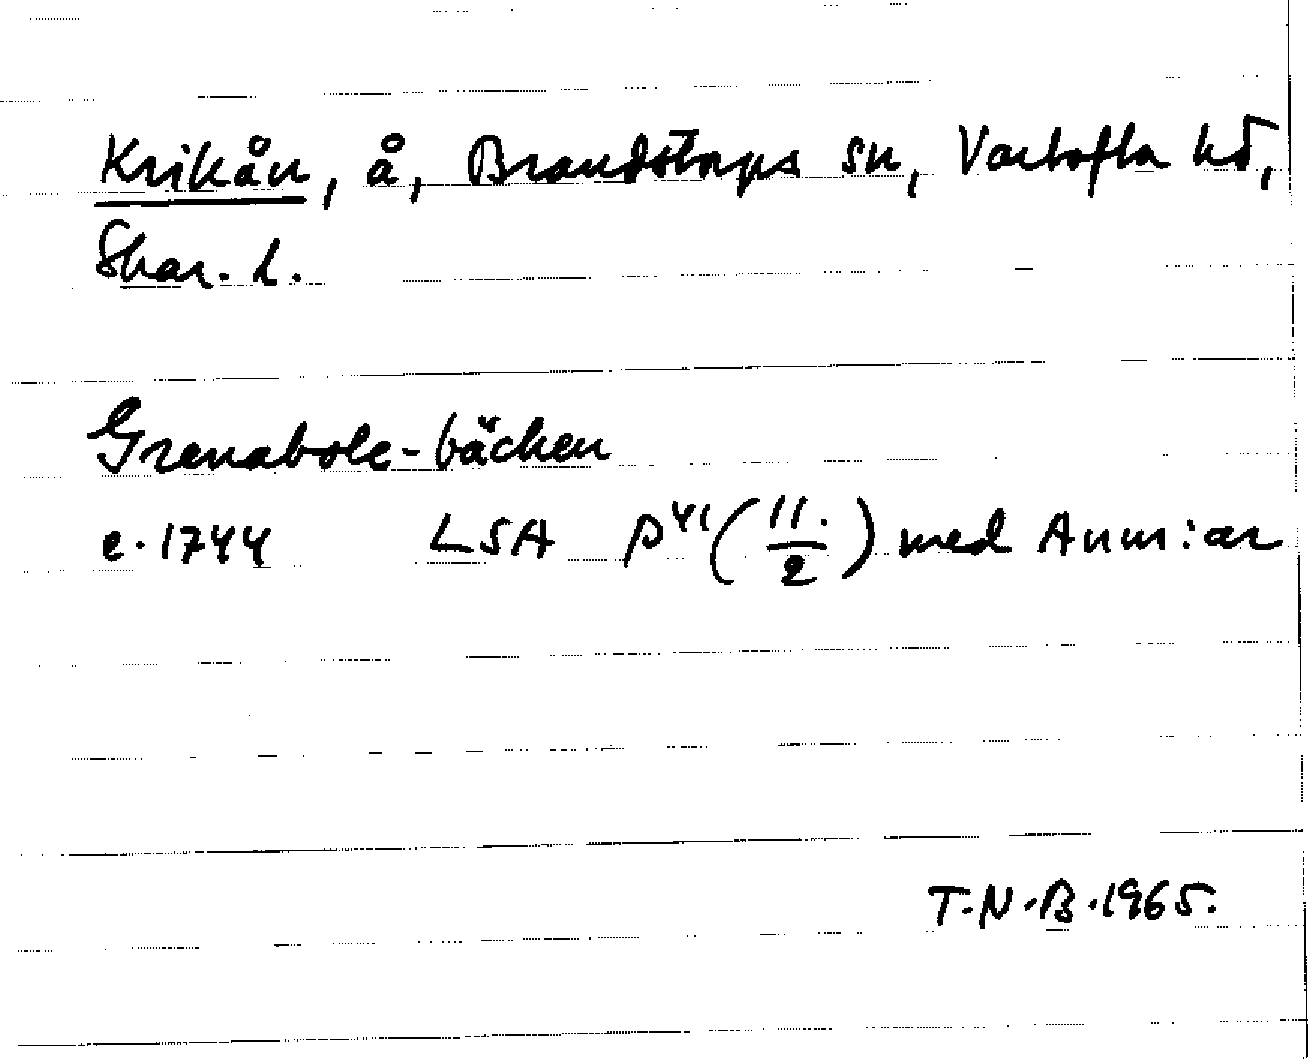 Krikån, å, Brandstorps sn, Vartofta hd,
Skar. l.
Grenabole-bäcken
c. 1744 LSA P41 (11./2) med Anm:ar
T.N.B. 1965.